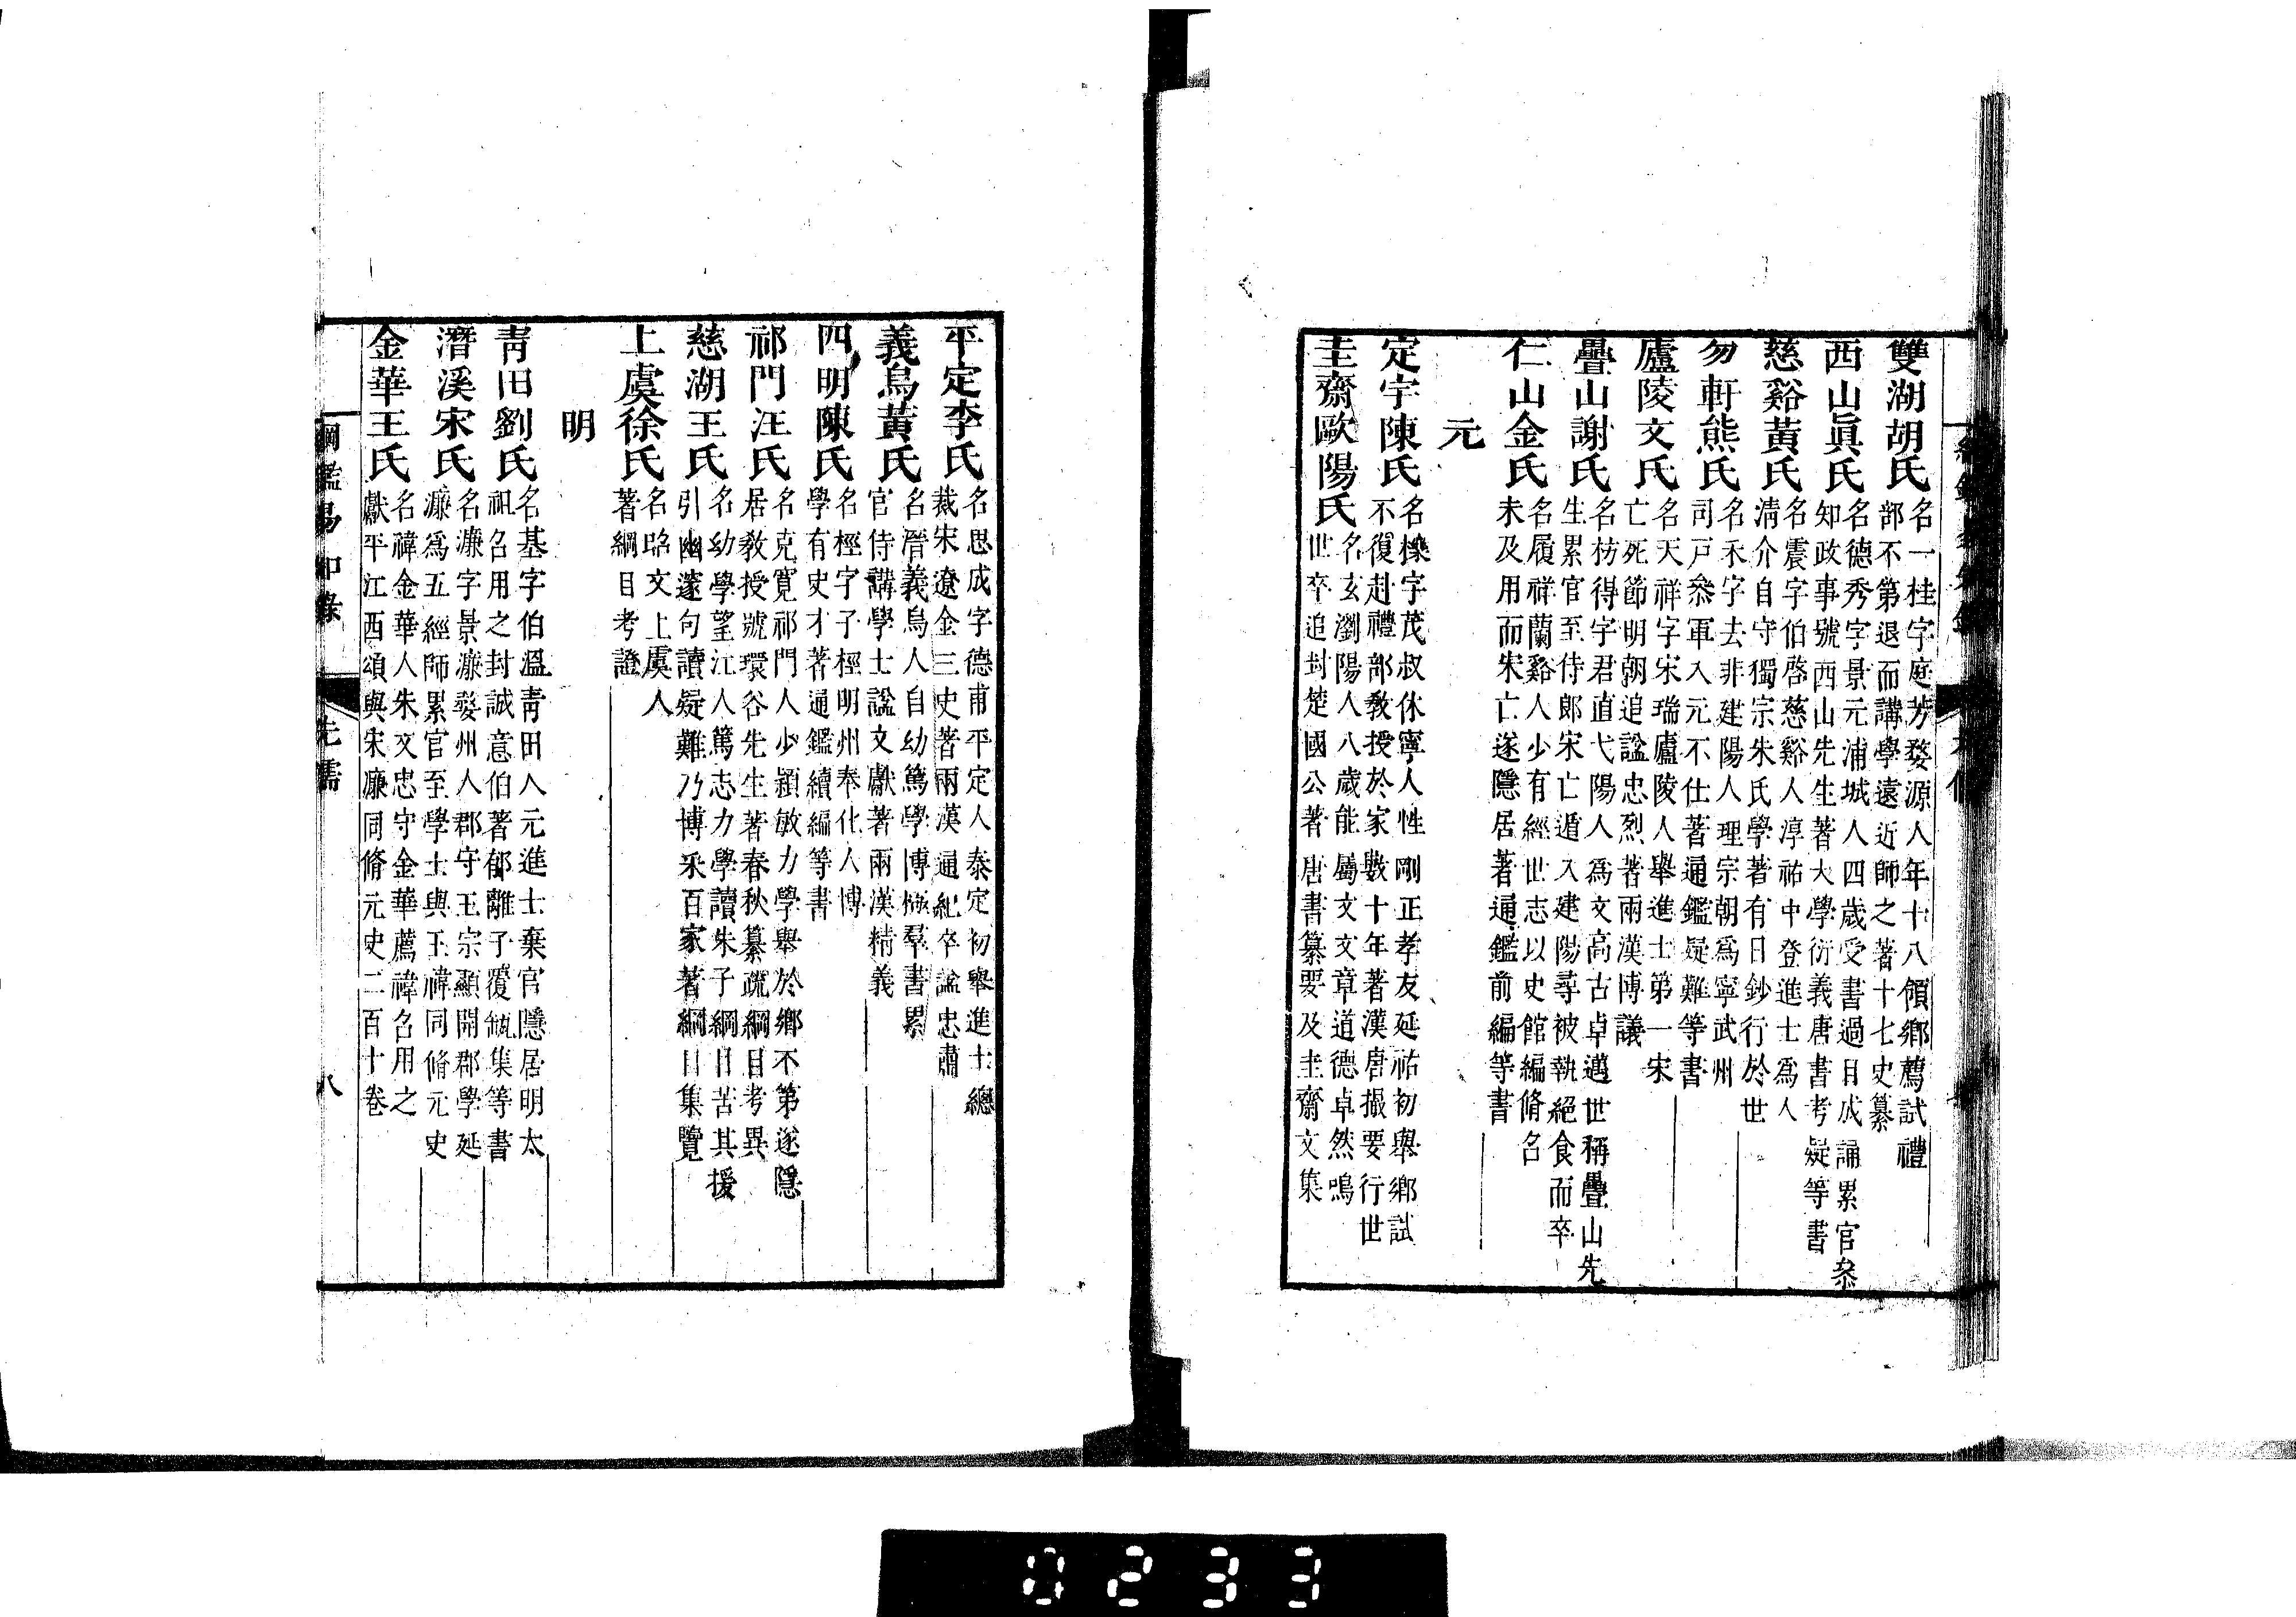 雙湖胡氏 名一桂字庭芳婺源人年十八領鄉薦試禮
部不第退而講學遠近師之著十七史纂
西山眞氏 名德秀字景元浦城人四歲受書過目成誦累官參
知政事號西山先生著大學衍義唐書考疑等書
慈谿黃氏 名震字伯啓慈谿人淳祐中登進士爲人
淸介自守獨宗朱氏學著有日鈔行於世
勿軒熊氏 名禾字去非建陽人理宗朝爲寧武州
司戸叅軍入元不仕著通鑑疑難等書
廬陵文氏 名天祥字宋瑞廬陵人舉進士第一宋
亡死節明朝追諡忠烈著兩漢博議
疊山謝氏 名枋得字君直弋陽人爲文高古卓邁世稱疊山先
生累官至侍郎宋亡遁入建陽尋被執絕食而卒
仁山金氏 名履祥蘭谿人少有經世志以史館編脩名
未及用而宋亡遂隱居著通鑑前編等書
元
定宇陳氏 名櫟字茂叔休寧人性剛正孝友延祐初舉鄉試
不復赴禮部敎授於家數十年著漢唐撮要行世
圭齋歐陽氏 名玄瀏陽人八歲能屬文文章道德卓然鳴
世卒追封楚國公著唐書纂要及圭齋文集
平定李氏 名思成字德甫平定人泰定初舉進士總
裁宋遼金三史著兩漢通紀卒諡忠肅
義烏黃氏 名溍義烏人自幼篤學博極羣書累
官侍講學士諡文獻著兩漢精義
四明陳氏 名桱字子桱明州奉化人博
學有史才著通鑑續編等書
祁門汪氏 名克寬祁門人少穎敏力學舉於鄉不第遂隱
居敎授號環谷先生著春秋纂疏綱目考異
慈湖王氏 名幼學望江人篤志力學讀朱子綱目苦其援
引幽邃句讀疑難乃博采百家著綱目集覽
上虞徐氏 名昭文上虞人
著綱目考證
明
靑田劉氏 名基字伯溫靑田人元進士棄官隱居明太
祖召用之封誠意伯著郁離子覆瓿集等書
潛溪宋氏 名濂字景濂婺州人郡守王宗顯開郡學延
濂爲五經師累官至學士與王禕同脩元史
金華王氏 名禕金華人朱文忠守金華薦禕召用之
獻平江西頌與宋濂同脩元史二百十卷
綱鑑易知錄 先儒 八
0233